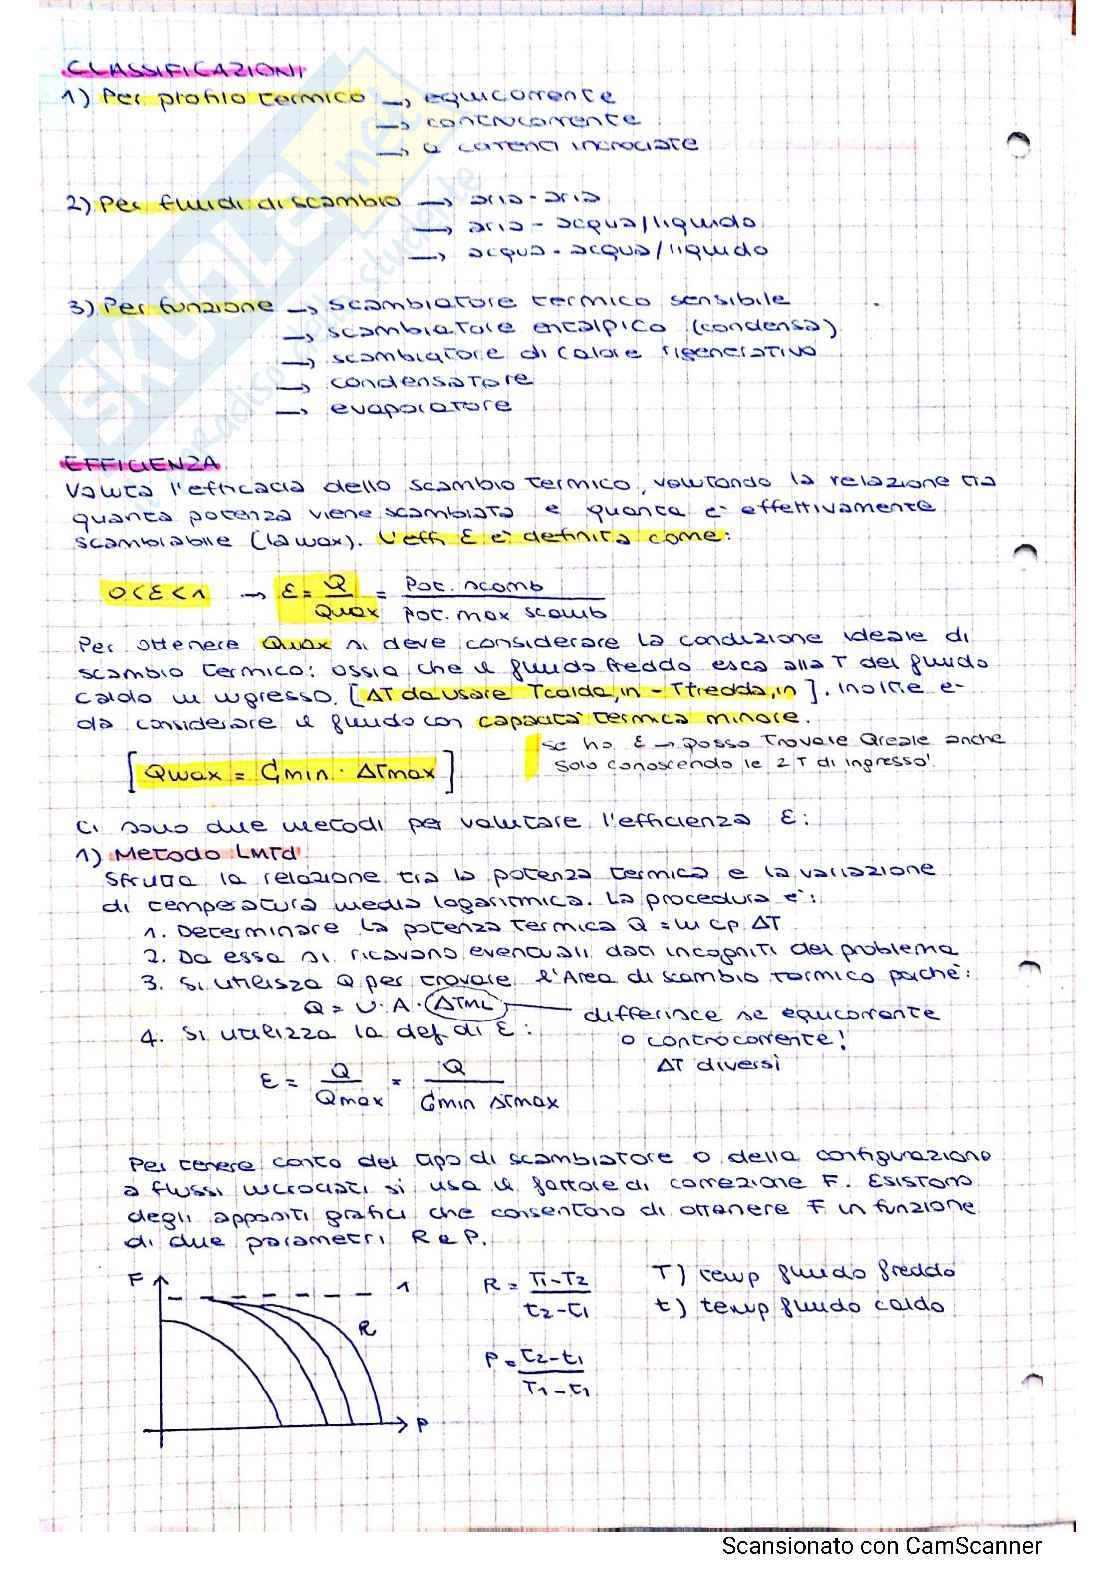 CLASSIFICAZIONI
1) Per profilo termico → equicorrente
→ controcorrente
→ a correnti incrociate
2) Per fluidi di scambio → aria-aria
→ aria-acqua/liquido
→ acqua-acqua/liquido
3) Per funzione → scambiatore termico sensibile
→ scambiatore entalpico (condensa)
→ scambiatore di calore rigenerativo
→ condensatore
→ evaporatore
EFFICIENZA
Valuta l'efficacia dello scambio termico, valutando la relazione tra
quanta potenza viene scambiata e quanta è effettivamente
scambiabile (la max). L'eff. ε è definita come:
0<ε<1 → ε = Q/Qmax = Pot. scamb/Pot. max scamb
Per ottenere Qmax si deve considerare la condizione ideale di
scambio termico: ossia che il fluido freddo esca alla T del fluido
caldo in ingresso. [ΔT da usare Tcalda,in - Tfredda,in]. Inoltre è
da considerare il fluido con capacità termica minore.
[Qmax = Cmin · ΔTmax]
se ho ε → posso trovare Qreale anche
solo conoscendo le 2 T di ingresso!
Ci sono due metodi per valutare l'efficienza ε:
1) Metodo LMTd
Sfrutta la relazione tra la potenza termica e la variazione
di temperatura media logaritmica. La procedura è:
1. Determinare la potenza termica Q = m cp ΔT
2. Da essa si ricavano eventuali dati incogniti del problema
3. Si utilizza Q per trovare l'Area di scambio termico poichè:
Q = U · A · ΔTML
differisce se equicorrente
o controcorrente!
ΔT diversi
4. Si utilizza la def. di ε:
ε = Q/Qmax = Q/Cmin ΔTmax
Per tenere conto del tipo di scambiatore o della configurazione
a flussi incrociati si usa il fattore di correzione F. Esistono
degli appositi grafici che consentono di ottenere F in funzione
di due parametri R e P.
F
1
R
P
R = T1-T2/t2-t1
P = t2-t1/T1-t1
T) temp fluido freddo
t) temp fluido caldo
SKUOLA.net
Scansionato con CamScanner